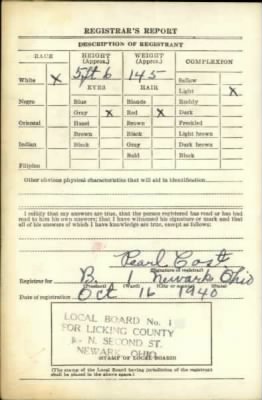 REGISTRAR'S REPORT
DESCRIPTION OF REGISTRANT
RACE HEIGHT (Approx.) WEIGHT (Approx.) COMPLEXION
5 ft 6 145
Sallow
White X EYES HAIR Light X
Negro Blue Blonde Ruddy
Gray X Red X Dark
Oriental Hazel Brown Freckled
Brown Black Light brown
Indian Black Gray Dark brown
Bald Black
Filipino
Other obvious physical characteristics that will aid in identification
I certify that my answers are true; that the person registered has read or has had
read to him his own answers; that I have witnessed his signature or mark and that
all of his answers of which I have knowledge are true, except as follows:
Pearl
(Signature of registrar)
Registrar for B. 1 Newark Ohio
(Precinct) (Ward) (City or county) (State)
Date of registration Oct 16 1940
LOCAL BOARD No. 1
FOR LICKING COUNTY
N. SECOND ST.
NEWARK, OHIO
(STAMP OF LOCAL BOARD)
(The stamp of the Local Board having jurisdiction of the registrant
shall be placed in the above space.)